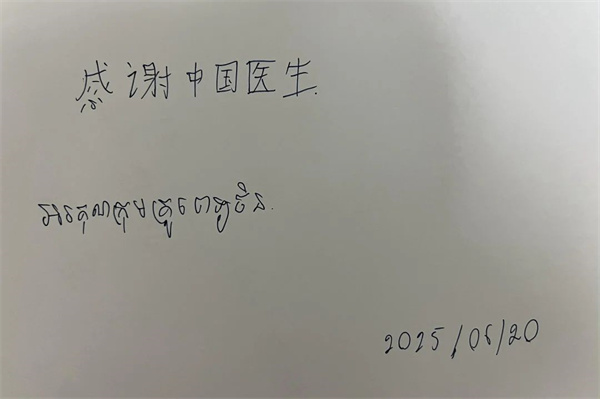 感谢中国医生.
អរគុណក្រុមគ្រូពេទ្យចិន.
2025/06/20